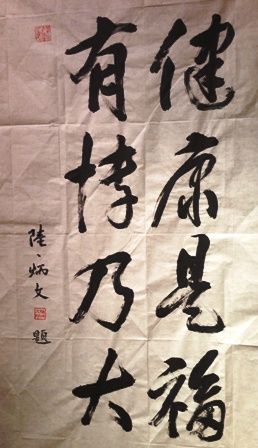 健康是福
有乃大
陸炳文題